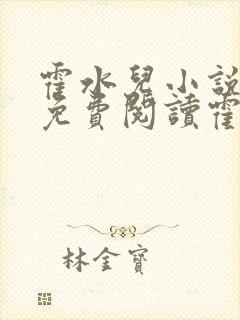 霍水兒小說
免費閱讀霍
林金寶